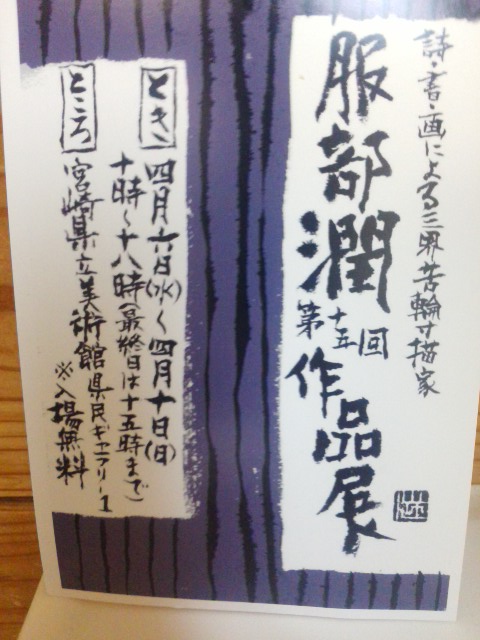 詩・書・画による三界苦輪寸描家
服部潤
第十五回
作品展
とき
四月六日(水)〜四月十日(日)
十時〜十八時(最終日は十五時まで)
ところ
宮崎県立美術館県民ギャラリー1
※入場無料